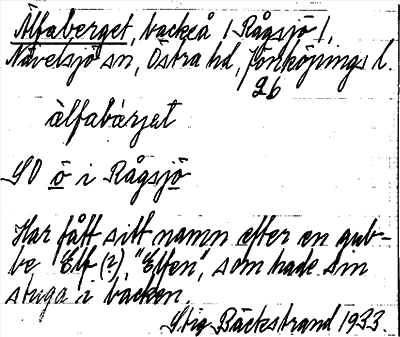 Älfaberget, backeå (Rågsjö),
Nävelsjö sn, Östra hd, Jönköpings l.
26
àlfabárjet
SO ö i Rågsjö
Har fått sitt namn efter en gub-
be "Elf(?), "Elfen", som hade sin
stuga i backen.
Stig Bäckstrand 1933.